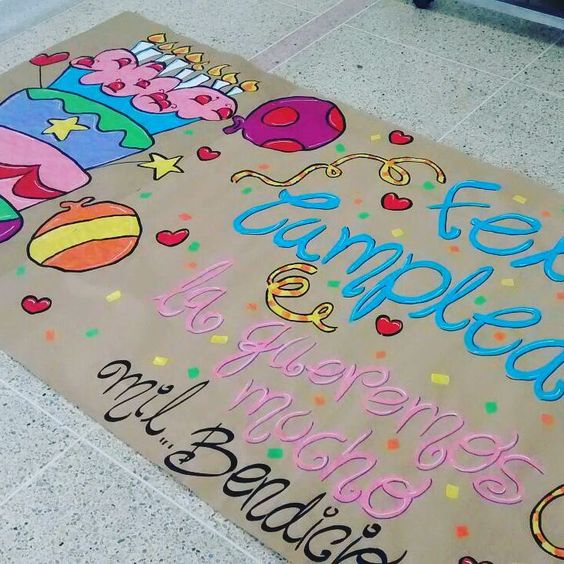 Feli
Cumplea
la queremos
mucho
mil... Bendicio